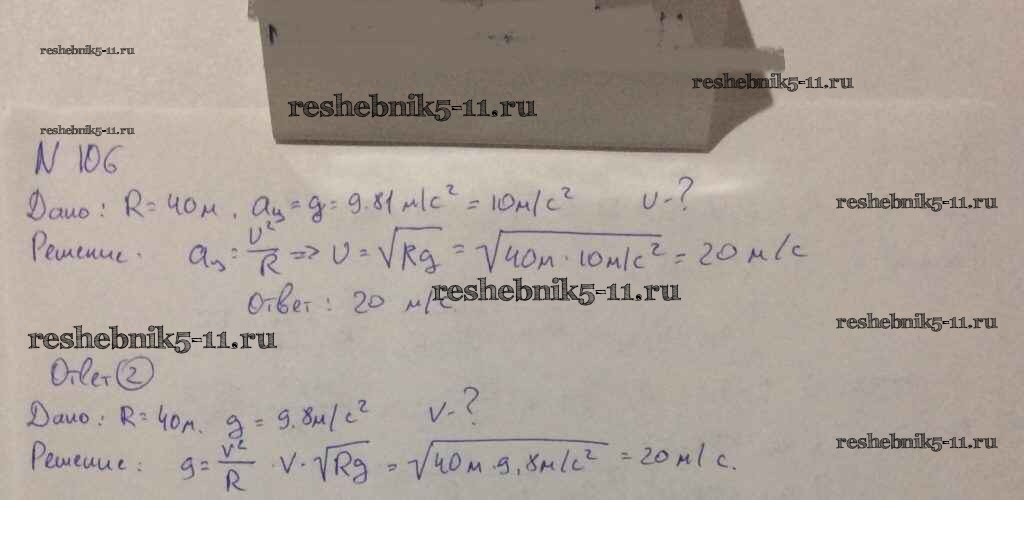 reshebnik5-11.ru
reshebnik5-11.ru
reshebnik5-11.ru
reshebnik5-11.ru
N 106
Дано: R = 40м. aц = g = 9.81 м/с² = 10м/с² υ-?
reshebnik5-11.ru
Решение. aц = υ²/R => υ = √Rg = √40м · 10м/с² = 20 м/с
Ответ: 20 м/с
reshebnik5-11.ru
reshebnik5-11.ru
reshebnik5-11.ru
Ответ (2)
Дано: R = 40м. g = 9.8м/с² V-?
reshebnik5-11.ru
Решение: g = V²/R · V · √Rg = √40м · 9,8м/с² = 20 м/с.